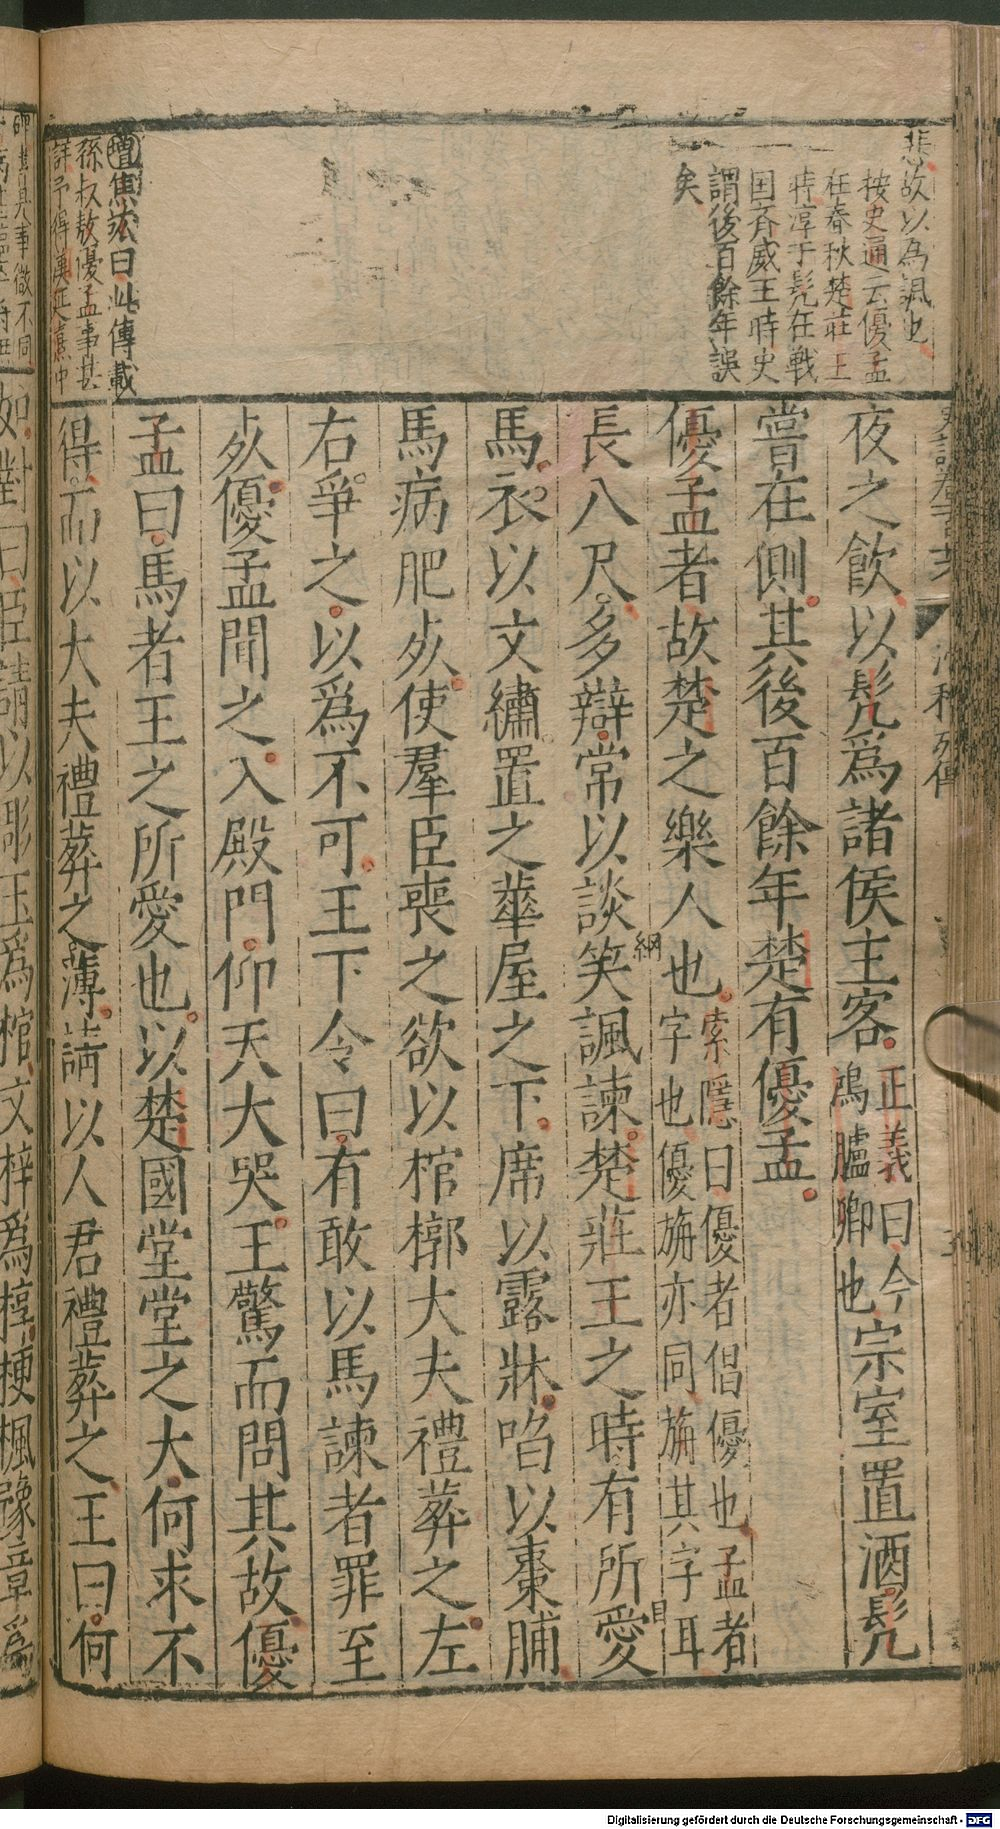 悲故以為諷也
按史通云優孟
在春秋楚莊王
時淳于髡在戰
国齐威王時史
謂後百餘年誤
矣
增焦竑曰此傳載
孫叔敖優孟事甚
詳予得漢延熹中
滑稽列傳
夜之飲以髡爲諸侯主客正義曰今鴻臚卿也宗室置酒髡
嘗在側其後百餘年楚有優孟
優孟者故楚之樂人也索隱曰優者倡優也孟者字也優旃亦同旃其字耳
長八尺多辯常以談笑諷諫楚莊王之時有所愛
馬衣以文繡置之華屋之下席以露牀啗以棗脯
馬病肥死使羣臣喪之欲以棺槨大夫禮葬之左
右爭之以爲不可王下令曰有敢以馬諫者罪至
死優孟聞之入殿門仰天大哭王驚而問其故優
孟曰馬者王之所愛也以楚國堂堂之大何求不
得而以大夫禮葬之薄請以人君禮葬之王曰何
如對曰臣請以彫玉爲棺文梓爲椁楩楓豫章爲
Digitalisierung gefördert durch die Deutsche Forschungsgemeinschaft - DFG